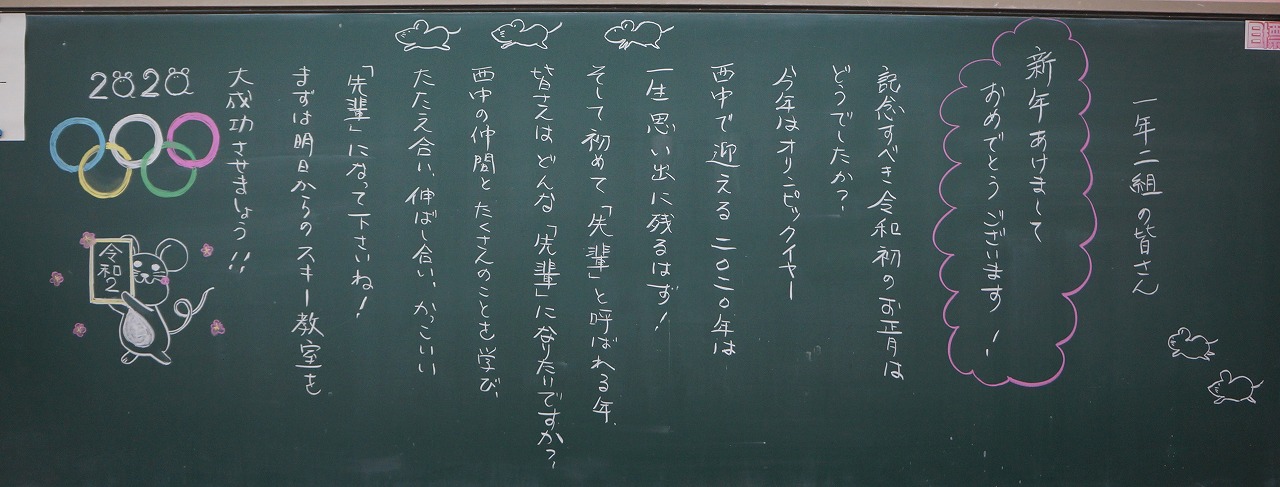 目標
一年二組の皆さん
新年あけまして
おめでとうございます！
記念すべき令和初のお正月は
どうでしたか？
今年はオリンピックイヤー
西中で迎える二〇二〇年は
一生思い出に残るはず！
そして初めて「先輩」と呼ばれる年。
皆さんはどんな「先輩」になりたいですか？
西中の仲間とたくさんのことを学び、
たたえ合い、伸ばし合い、かっこいい
「先輩」になって下さいね！
まずは明日からのスキー教室を
大成功させましょう！！
2020
令和2